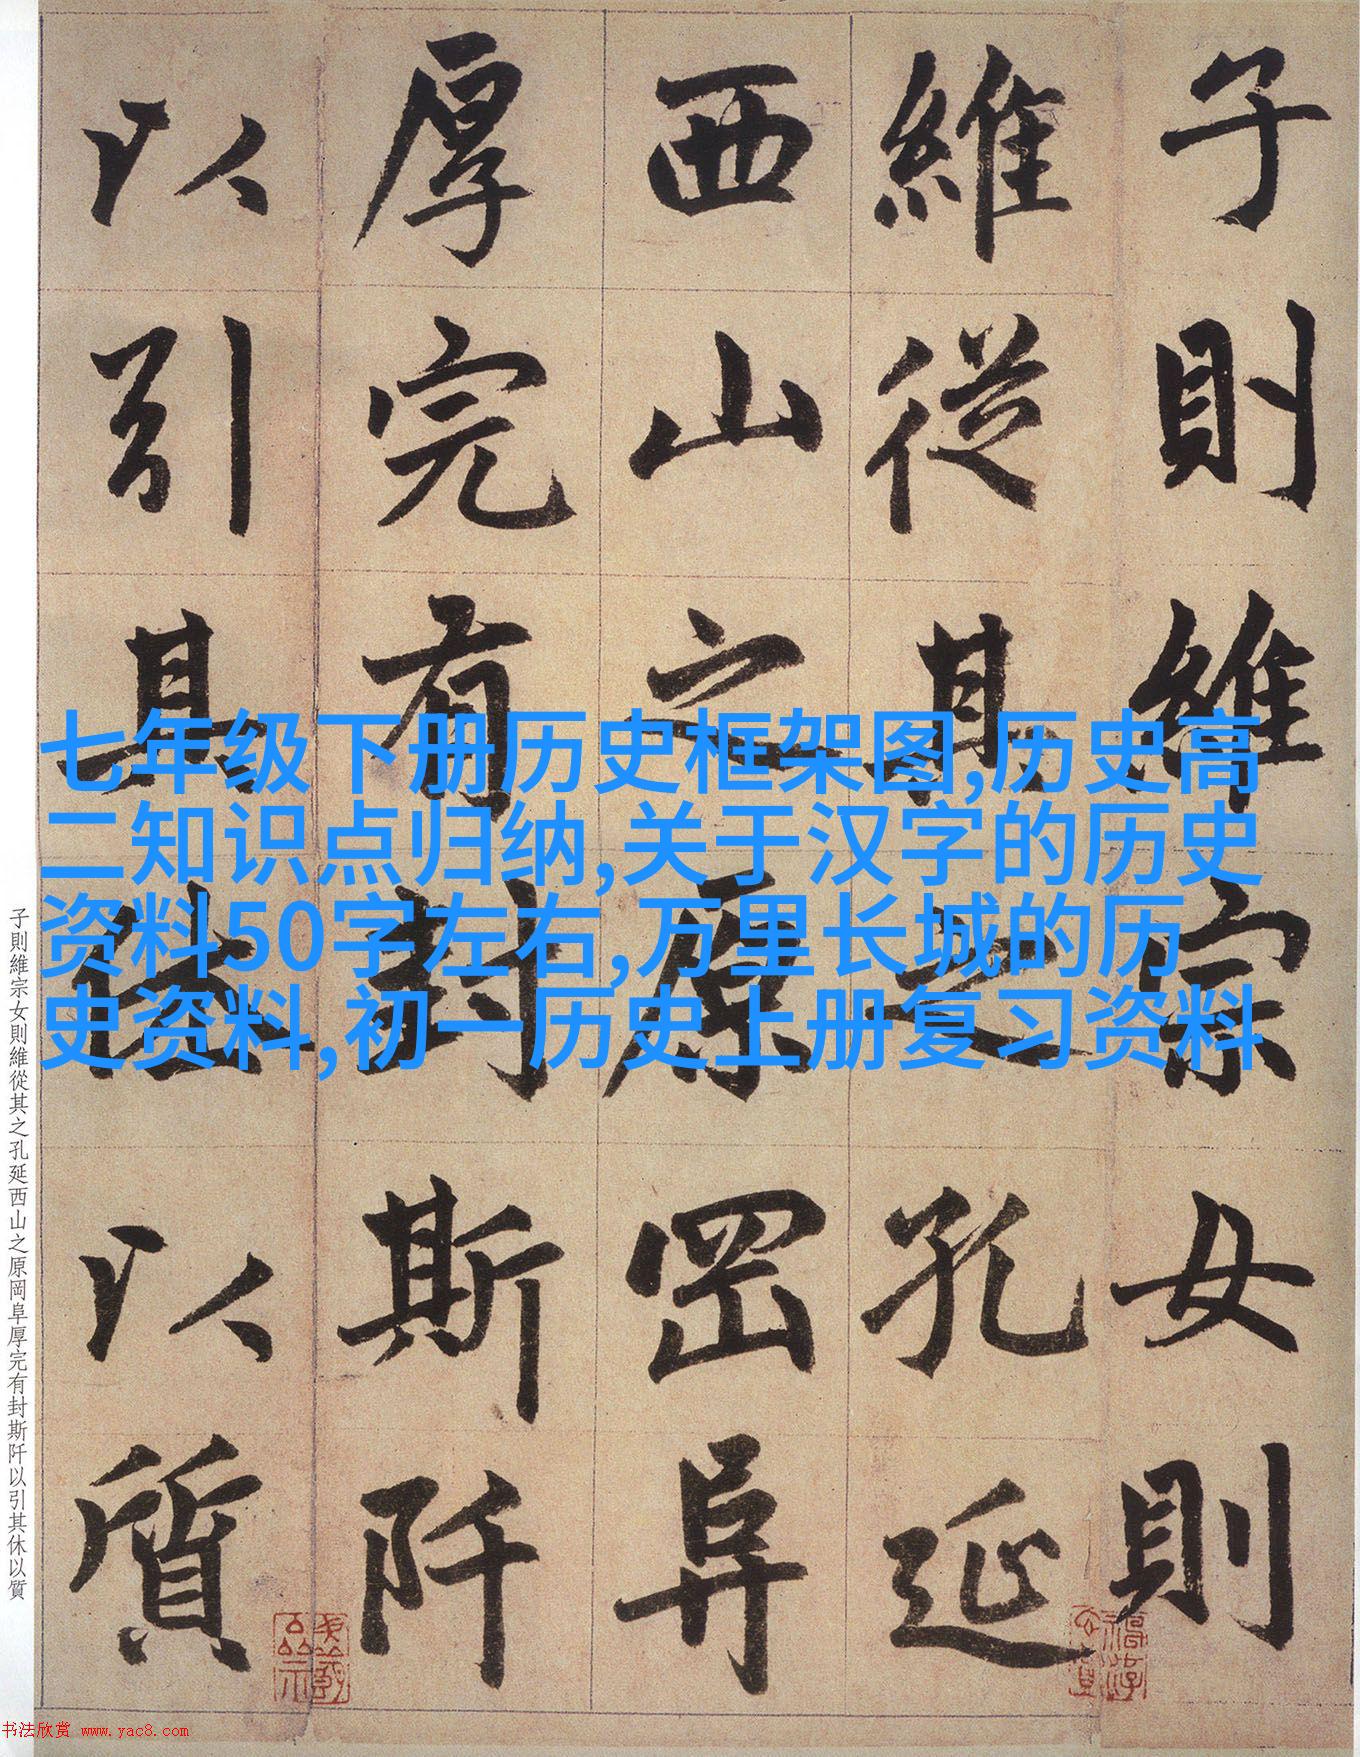 子則維宗女則
維從其之孔延
西山之原岡阜
厚完有封斯阡
以引其休以質
七年级下册历史框架图,历史高
二知识点归纳,关于汉字的历史
资料50字左右,万里长城的历
史资料,初一历史上册复习资料
子則維宗女則維從其之孔延西山之原岡阜厚完有封斯阡以引其休以質
书法欣赏 www.yac8.com